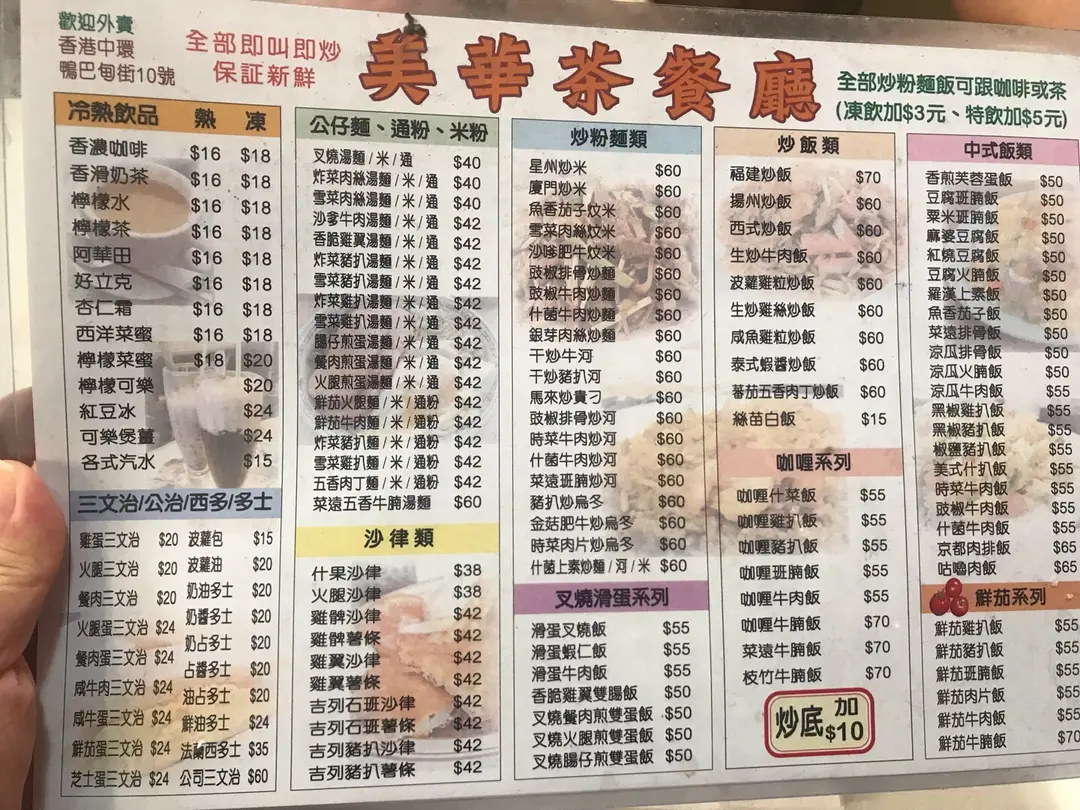 歡迎外賣
香港中環
鴨巴甸街10號
全部即叫即炒
保証新鮮
美華茶餐廳
全部炒粉麵飯可跟咖啡或茶
(凍飲加$3元、特飲加$5元)
冷熱飲品 熱 凍
香濃咖啡 $16 $18
香滑奶茶 $16 $18
檸檬水 $16 $18
檸檬茶 $16 $18
阿華田 $16 $18
好立克 $16 $18
杏仁霜 $16 $18
西洋菜蜜 $16 $18
檸檬菜蜜 $18 $20
檸檬可樂 $20
紅豆冰 $24
可樂煲薑 $24
各式汽水 $15
三文治/公治/西多/多士
雞蛋三文治 $20 波蘿包 $15
火腿三文治 $20 波蘿油 $20
餐肉三文治 $20 奶油多士 $20
火腿蛋三文治 $24 奶醬多士 $20
餐肉蛋三文治 $24 奶占多士 $20
咸牛肉三文治 $24 占醬多士 $20
咸牛蛋三文治 $24 油占多士 $20
鮮茄蛋三文治 $24 鮮油多士 $24
芝士蛋三文治 $24 法蘭西多士 $35
公司三文治 $60
公仔麵、通粉、米粉
叉燒湯麵/米/通 $40
炸菜肉絲湯麵/米/通 $40
雪菜肉絲湯麵/米/通 $40
沙爹牛肉湯麵/米/通 $42
香脆雞翼湯麵/米/通 $42
炸菜豬扒湯麵/米/通 $42
雪菜豬扒湯麵/米/通 $42
炸菜雞扒湯麵/米/通 $42
雪菜雞扒湯麵/米/通 $42
腸仔煎蛋湯麵/米/通 $42
餐肉煎蛋湯麵/米/通 $42
火腿煎蛋湯麵/米/通 $42
鮮茄火腿麵/米/通粉 $42
鮮茄牛肉麵/米/通粉 $42
炸菜豬扒麵/米/通粉 $42
雪菜雞扒麵/米/通粉 $42
五香肉丁麵/米/通粉 $42
菜遠五香牛腩湯麵 $60
沙律類
什果沙律 $38
火腿沙律 $38
雞髀沙律 $42
雞髀薯條 $42
雞翼沙律 $42
雞翼薯條 $42
吉列石班沙律 $42
吉列石班薯條 $42
吉列豬扒沙律 $42
吉列豬扒薯條 $42
炒粉麵類
星州炒米 $60
廈門炒米 $60
魚香茄子炆米 $60
雪菜肉絲炆米 $60
沙嗲肥牛炆米 $60
豉椒排骨炒麵 $60
豉椒牛肉炒麵 $60
什菌牛肉炒麵 $60
銀芽肉絲炒麵 $60
干炒牛河 $60
干炒豬扒河 $60
馬來炒貴刁 $60
豉椒排骨炒河 $60
時菜牛肉炒河 $60
什菌牛肉炒河 $60
菜遠班腩炒河 $60
豬扒炒烏冬 $60
金菇肥牛炒烏冬 $60
時菜肉片炒烏冬 $60
什菌上素炒麵/河/米 $60
叉燒滑蛋系列
滑蛋叉燒飯 $55
滑蛋蝦仁飯 $55
滑蛋牛肉飯 $55
香脆雞翼雙腸飯 $50
叉燒餐肉煎雙蛋飯 $50
叉燒火腿煎雙蛋飯 $50
叉燒腸仔煎雙蛋飯 $50
炒飯類
福建炒飯 $70
揚州炒飯 $60
西式炒飯 $60
生炒牛肉飯 $60
波蘿雞粒炒飯 $60
生炒雞絲炒飯 $60
咸魚雞粒炒飯 $60
泰式蝦醬炒飯 $60
蕃茄五香肉丁炒飯 $60
絲苗白飯 $15
咖喱系列
咖喱什菜飯 $55
咖喱雞扒飯 $55
咖喱豬扒飯 $55
咖喱班腩飯 $55
咖喱牛肉飯 $55
咖喱牛腩飯 $70
菜遠牛腩飯 $70
枝竹牛腩飯 $70
炒底 加$10
中式飯類
香煎芙蓉蛋飯 $50
豆腐班腩飯 $50
粟米班腩飯 $50
麻婆豆腐飯 $50
紅燒豆腐飯 $50
豆腐火腩飯 $50
羅漢上素飯 $50
魚香茄子飯 $50
菜遠排骨飯 $50
涼瓜排骨飯 $50
涼瓜火腩飯 $50
涼瓜牛肉飯 $55
黑椒雞扒飯 $55
黑椒豬扒飯 $55
椒鹽豬扒飯 $55
美式什扒飯 $55
時菜牛肉飯 $55
豉椒牛肉飯 $55
什菌牛肉飯 $55
京都肉排飯 $65
咕嚕肉飯 $65
鮮茄系列
鮮茄雞扒飯 $55
鮮茄豬扒飯 $55
鮮茄班腩飯 $55
鮮茄肉片飯 $55
鮮茄牛肉飯 $55
鮮茄牛腩飯 $70